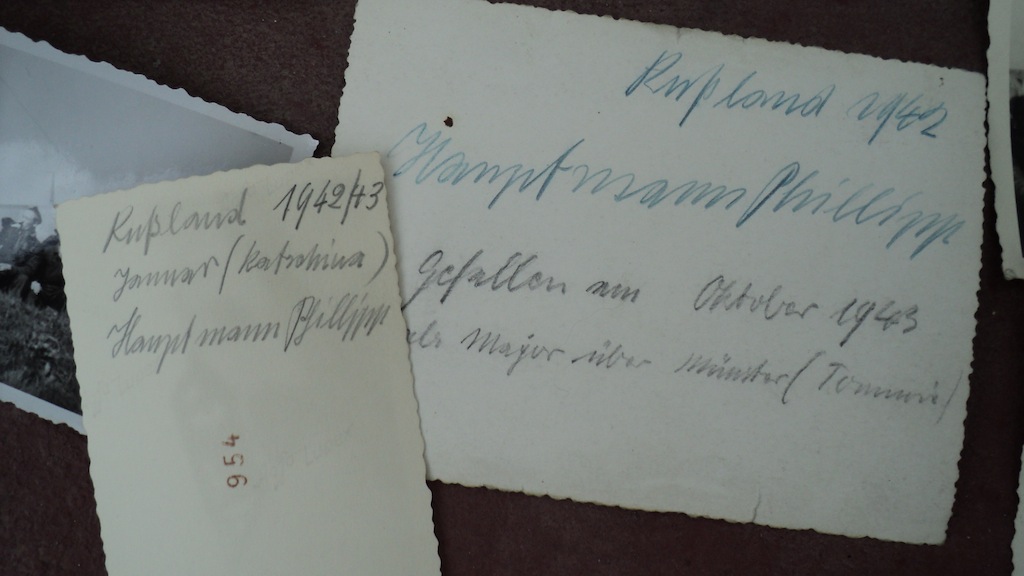 Rußland 1942/43
Januar (Katschina)
Hauptmann Phillipp
954
Rußland 1942
Hauptmann Phillipp
Gefallen am Oktober 1943
als Major über Münster (Tommi)